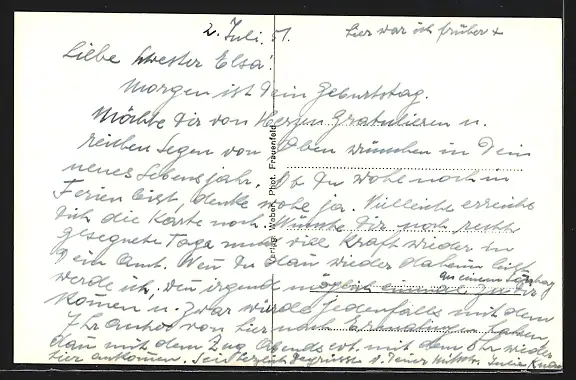 2. Juli. 51.
Hier war ich früher +
Liebe Schwester Elsa!
Morgen ist Dein Geburtstag.
Möchte Dir von Herzen Gratulieren u.
reichen Segen von Oben wünschen in Dein
neues Lebensjahr. Ob Du wohl noch in
Ferien bist, denke wohl ja. Vielleicht erreicht
Dich die Karte noch. Wünsche Dir noch recht
gesegnete Tage und viel Kraft wieder in
Dein Amt. Wen Du dan wieder daheim bist
werde ich, wen irgend möglich einmal zu Dir
an einem Samstag
komen u. zwar würde jedenfalls mit dem
Uhr Autos von hier nach
dan mit dem Zug Abends evt. mit dem 8 Uhr wieder
hier ankommen. Sei herzlich Gegrüsst v. Deiner Julie
Verlag Weber, Phot. Frauenfeld